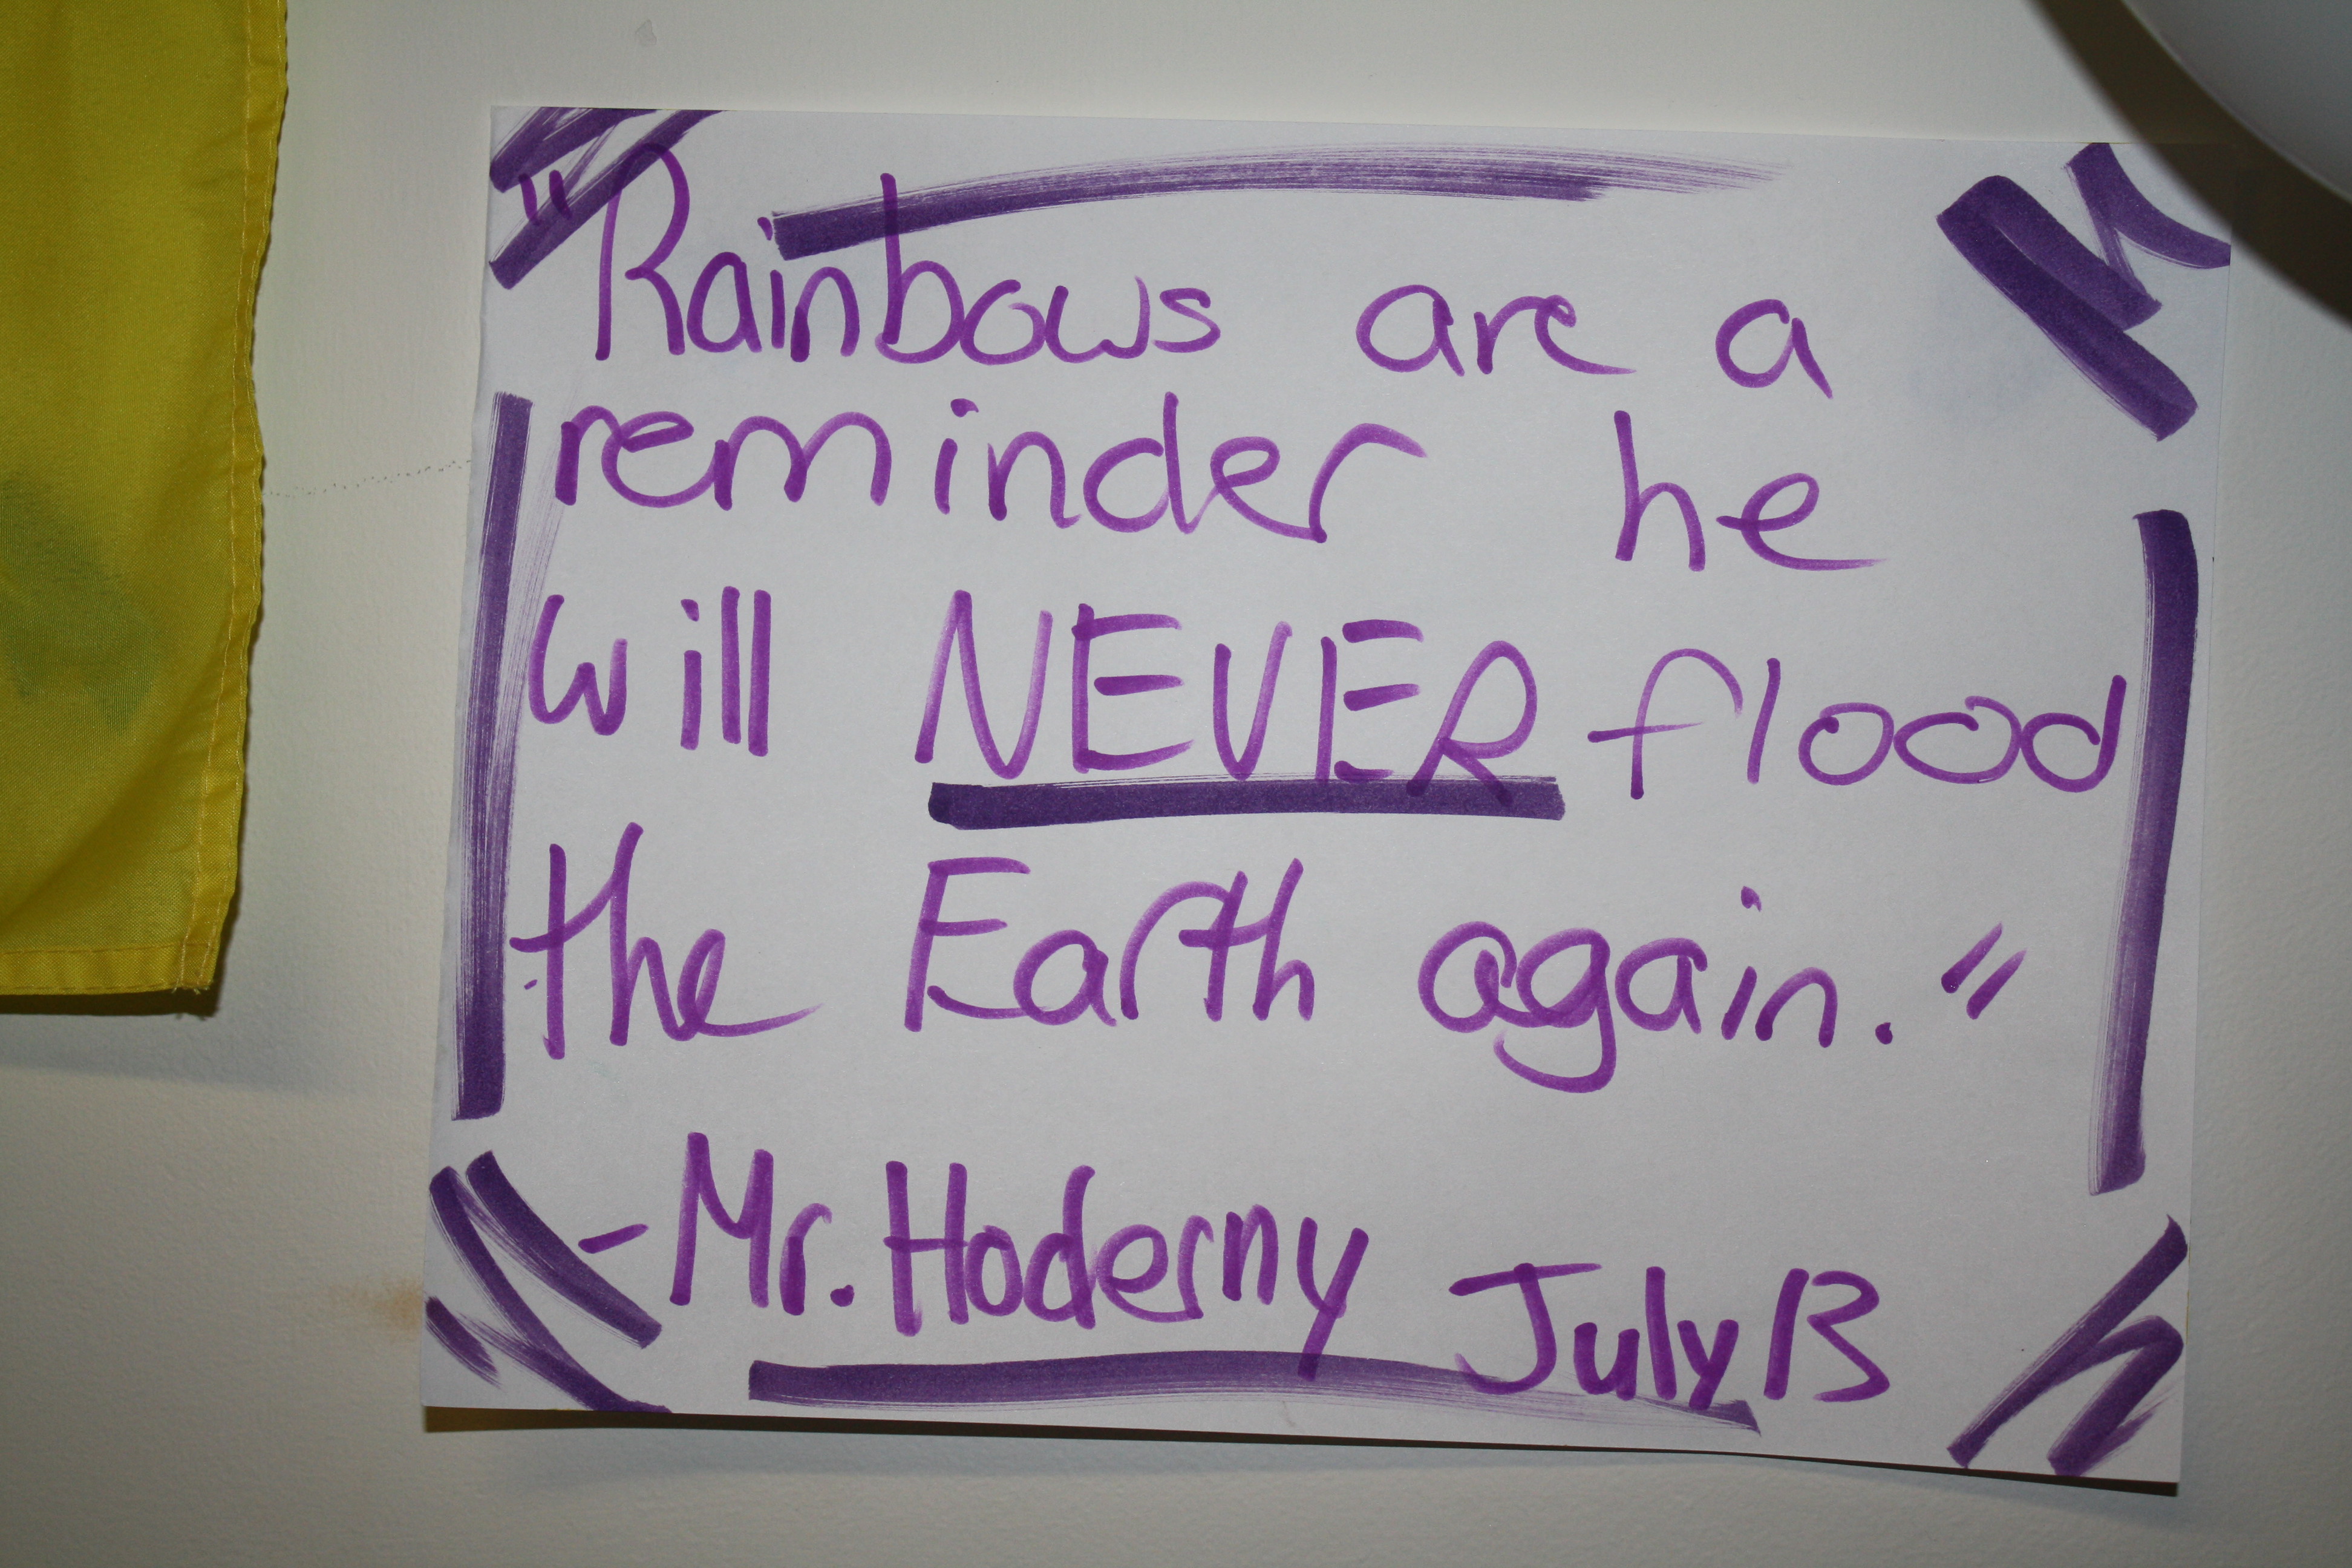 "Rainbows are a
reminder he
will NEVER flood
the Earth again."
-Mr. Hoderny July 13